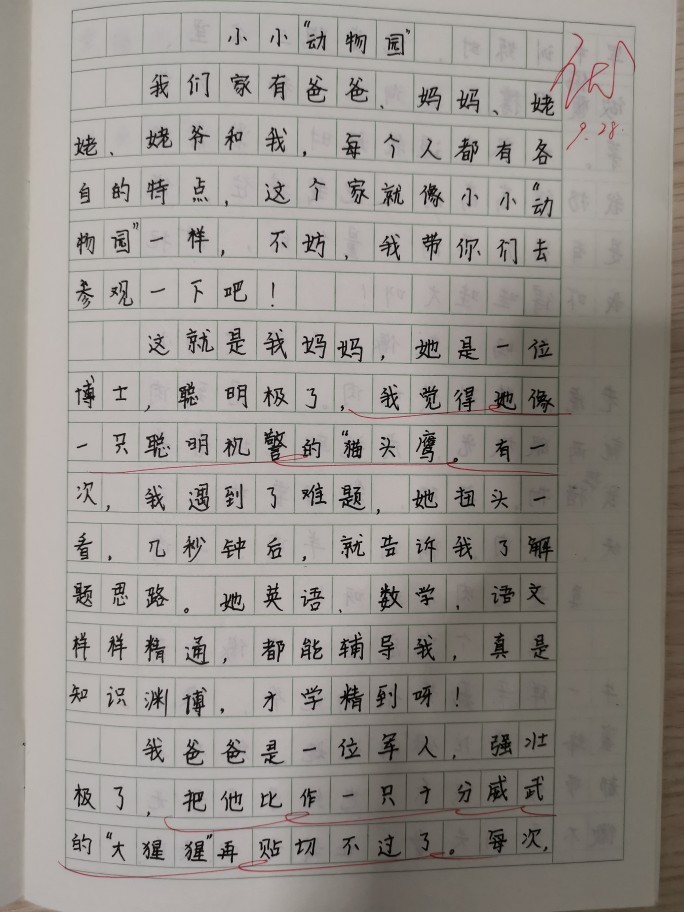 小小"动物园"
我们家有爸爸、妈妈、姥
姥、姥爷和我，每个人都有各
自的特点，这个家就像小小"动
物园"一样，不妨，我带你们去
参观一下吧！
这就是我妈妈，她是一位
博士，聪明极了，我觉得她像
一只聪明机警的"猫头鹰。有一
次，我遇到了难题，她扭头一
看，几秒钟后，就告诉我了解
题思路。她英语、数学、语文
样样精通，都能辅导我，真是
知识渊博，才学精到呀！
我爸爸是一位军人，强壮
极了，把他比作一只十分威武
的"大猩猩"再贴切不过了。每次，
优
9.28.